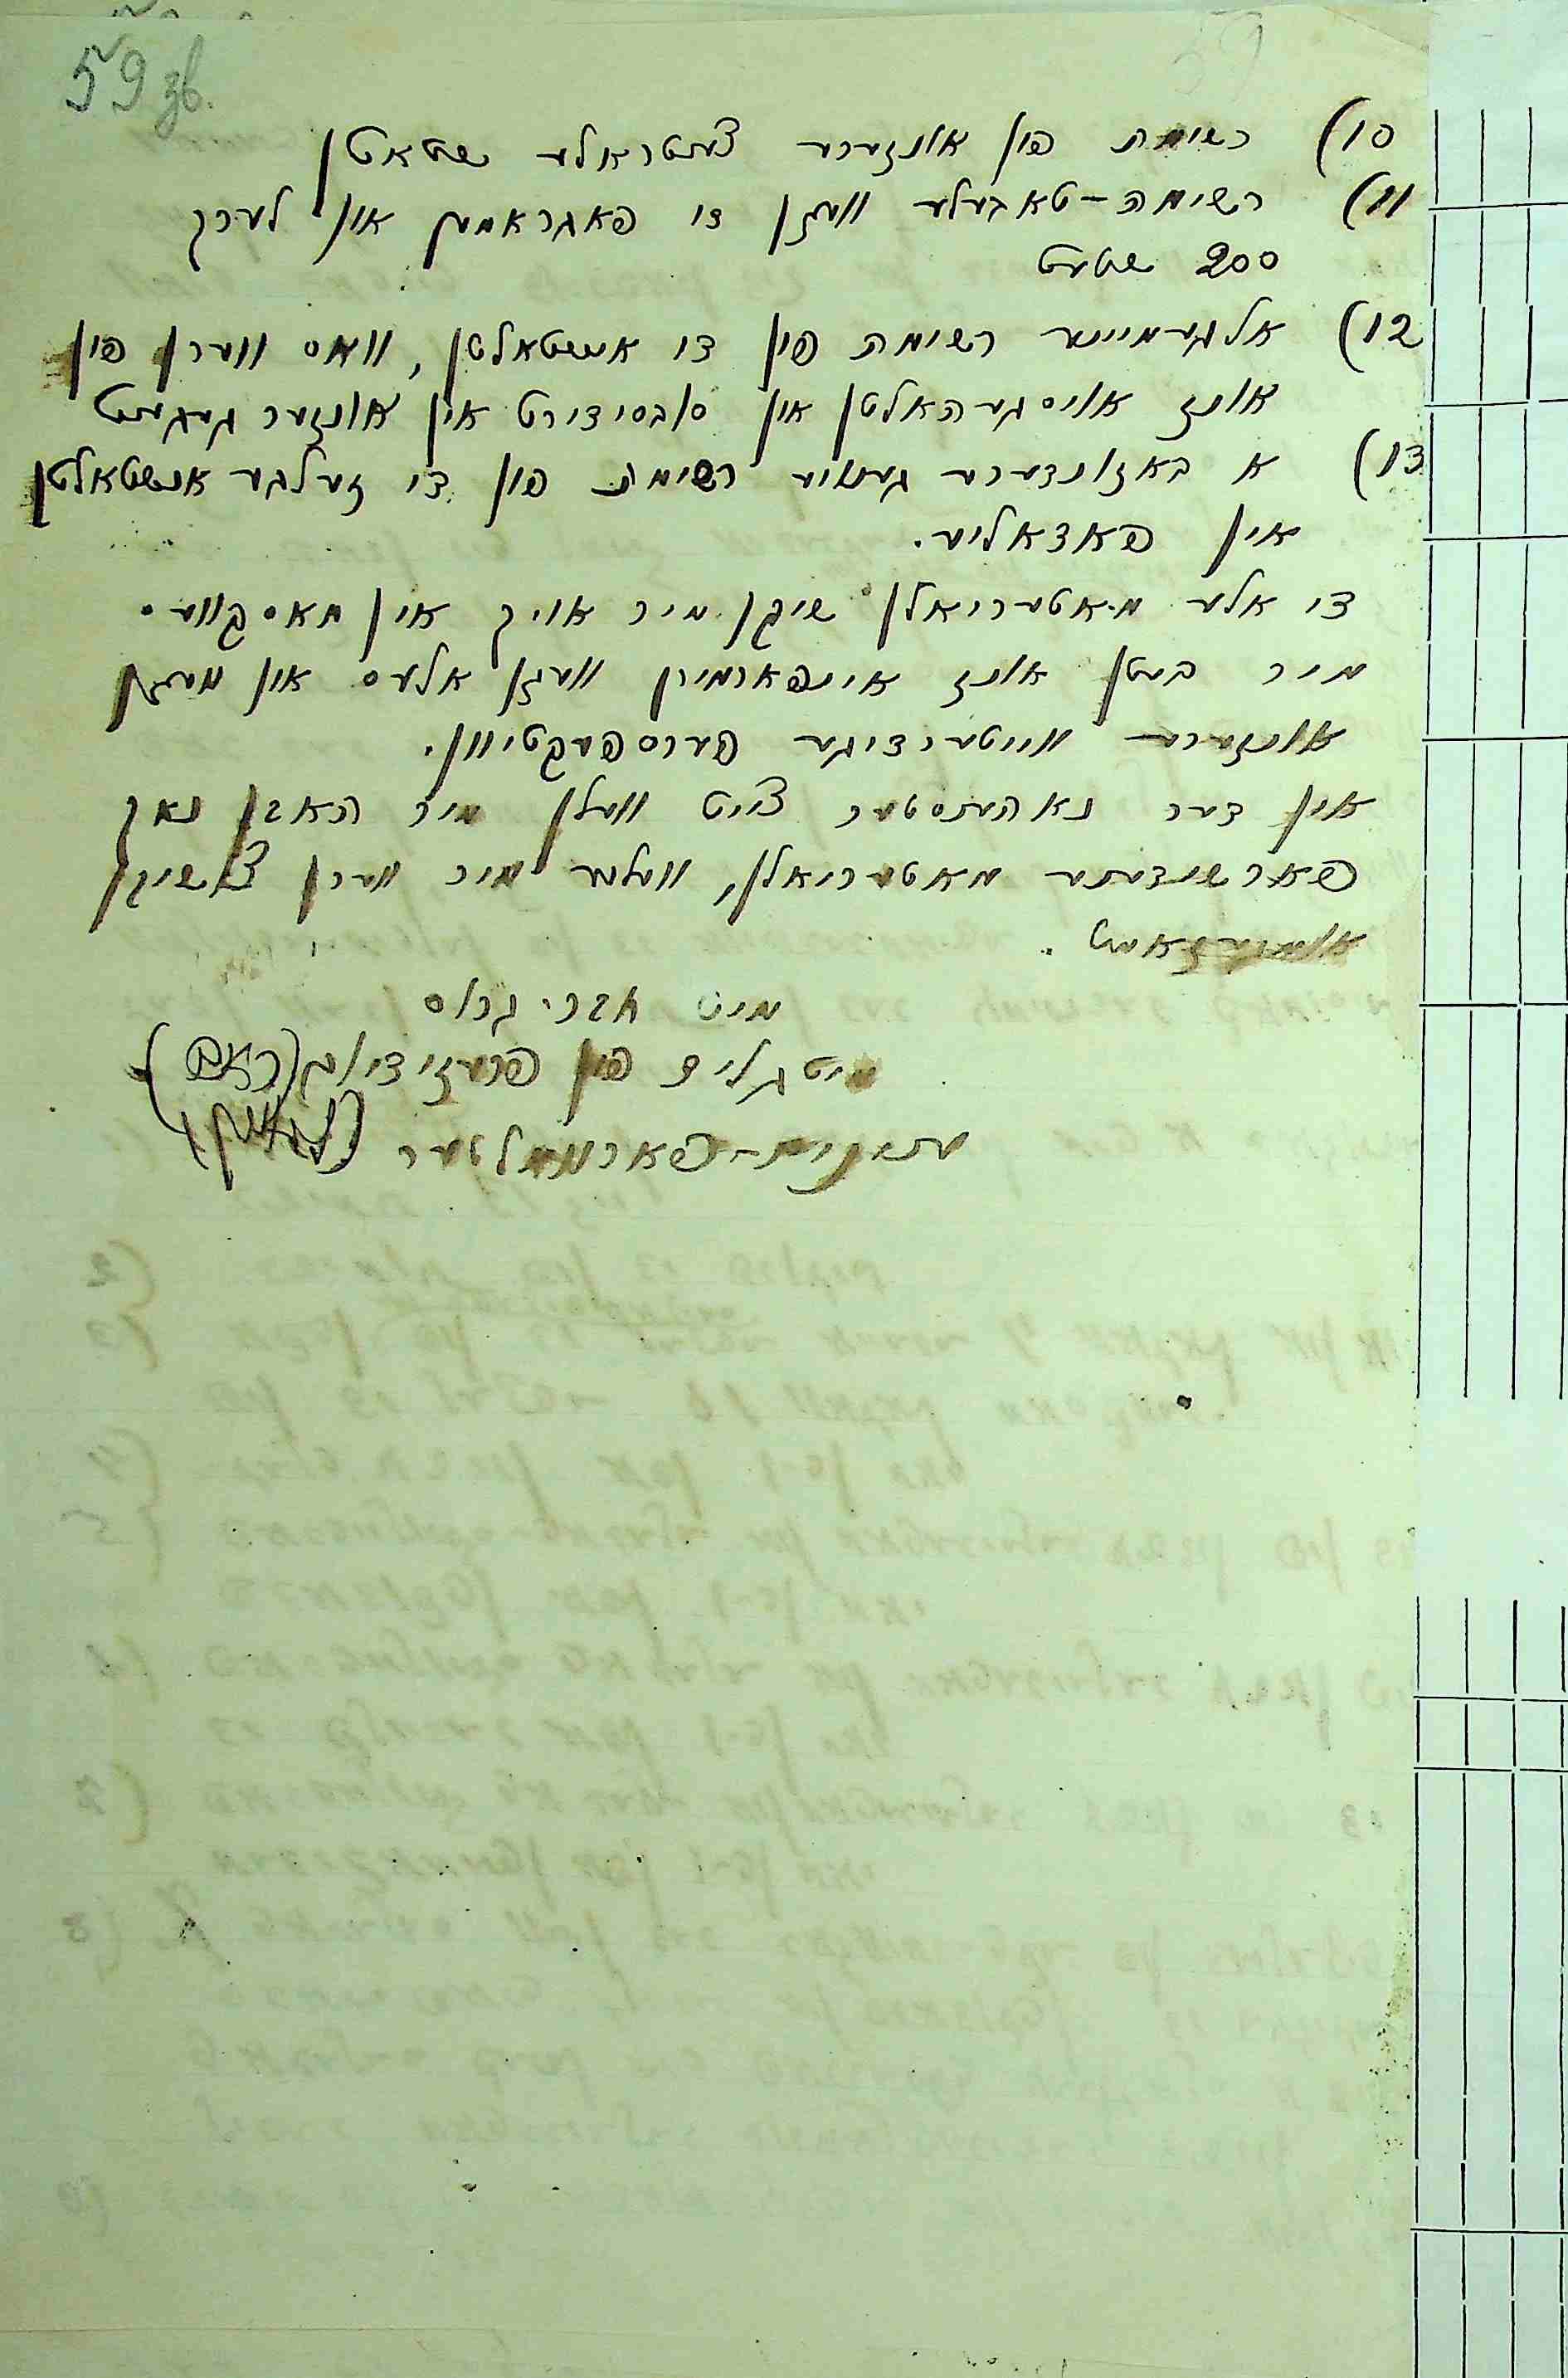 59 зв.
10) רשימה פון אונזערע צענטראלע שטאטן
11) רשימה-טאבעלע וועגן די פאגראמען אין לערך
200 שטעט
12) אלגעמיינע רשימה פון די אנשטאלטן, וואס ווערן פון
אונז אויסגעהאלטן און סובסידירט אין אונזער געגענט
13) א באזונדערע גענויע רשימה פון די זעלבע אנשטאלטן
אין פאדאליע.
די אלע מאטעריאלן שיקן מיר אויך אין מאסקווע.
מיר בעטן אונז אינפארמירן וועגן אלעס און וועגן
אונזערע ווייטערדיגע פערספעקטיוון.
אין דער נאהענסטער צייט וועלן מיר האבן נאך
פארשידענע מאטעריאלן, וועלכע מיר וועלן צושיקן
מיט חברי גרוס
מיטגליד פון פרעזידיום